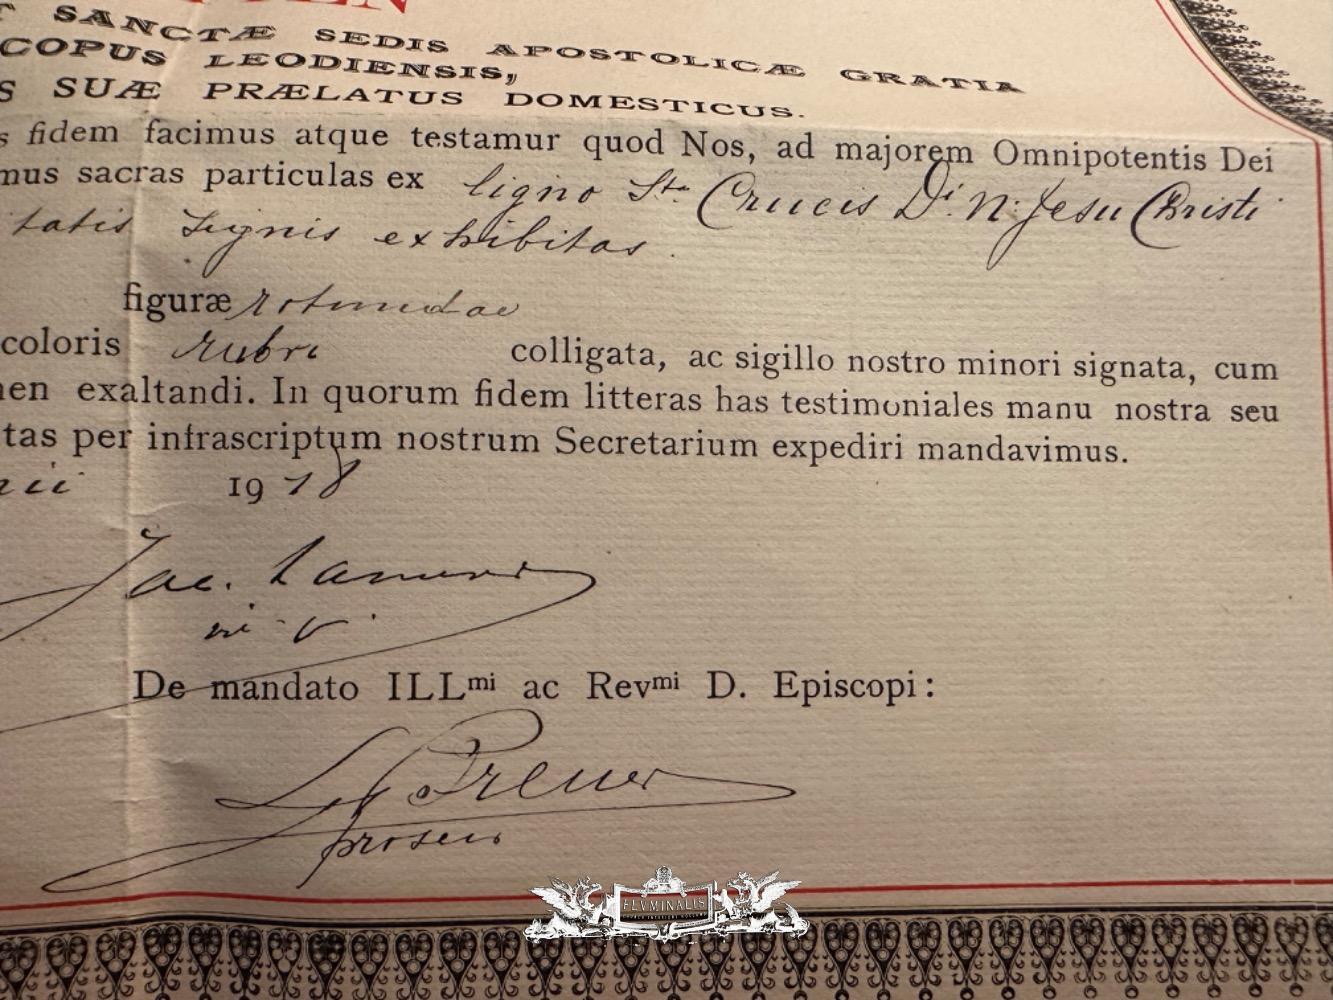 T SANCTÆ SEDIS APOSTOLICÆ GRATIA
COPUS LEODIENSIS,
S SUÆ PRÆLATUS DOMESTICUS.
s fidem facimus atque testamur quod Nos, ad majorem Omnipotentis Dei
mus sacras particulas ex ligno Stæ Crucis Di. N. Jesu Christi
tatis signis exhibitas.
figuræ rotundae
coloris rubri colligata, ac sigillo nostro minori signata, cum
nen exaltandi. In quorum fidem litteras has testimoniales manu nostra seu
tas per infrascriptum nostrum Secretarium expediri mandavimus.
nii 1918
Jac.
De mandato ILLmi ac Revmi D. Episcopi:
prosec.